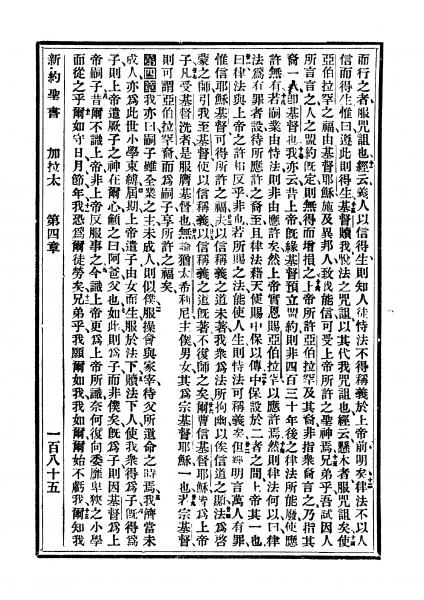 而行之者服咒詛也經云義人以信得生則知人徒恃法不得稱義於上帝前明矣律法不以人
信而得生惟曰遵此則得生基督贖我脫法之咒詛以其代我咒詛也經云懸木者服咒詛矣使
亞伯拉罕之福由基督耶穌施及異邦人致我能信可受上帝所許之聖神焉兄弟乎吾試因人
所言言之人之盟約旣定則無得而增損之上帝所許亞伯拉罕及其裔非指衆裔言之乃指其
裔一人卽基督也我亦云昔上帝旣緣基督預立盟約則非四百三十年後之律法所能廢使應
許無有若嗣業由恃法則非由應許矣然上帝實恩賜亞伯拉罕以應許焉然則律法何以曰律
法爲有罪者設待所應許之裔至且律法藉天使賜中保以傳中保設於二者之間上帝其一也
曰律法與上帝之許相反乎非也若所賜之法能使人生則恃法可稱義矣但經明言萬人有罪
惟信耶穌基督可得所許夫以信稱義之道未著我衆爲法所拘幽以俟信道之顯法爲啓
蒙之師引我至基督使以信稱義以信稱義之道旣著不復師之矣爾曹信基督耶穌皆爲上帝
子凡受基督洗者是服膺基督也無論猶太希利尼主僕男女其爲宗基督耶穌一也若宗基督
則可謂亞伯拉罕裔而爲嗣子享所許之福矣
第四章我亦曰嗣子雖全業之主未成人則似僕服操會與家宰待父所遺命之時焉我儕當未
成人亦爲此世小學束縛屆期上帝遣子由女而生服於法下贖法下人使我衆得爲子旣得爲
子則上帝遣厥子之神在爾心籲之曰阿爸父也如此則爲子而非僕矣旣爲子則因基督爲上
帝嗣子昔爾不識上帝非上帝反服事之今識上帝更爲上帝所識奈何復向委靡卑狹之小學
而從之乎爾如守日月節年我恐爲爾徒勞矣兄弟乎我願爾如我我如爾爾始不虧我爾知我
新約聖書 加拉太 第四章 一百八十五